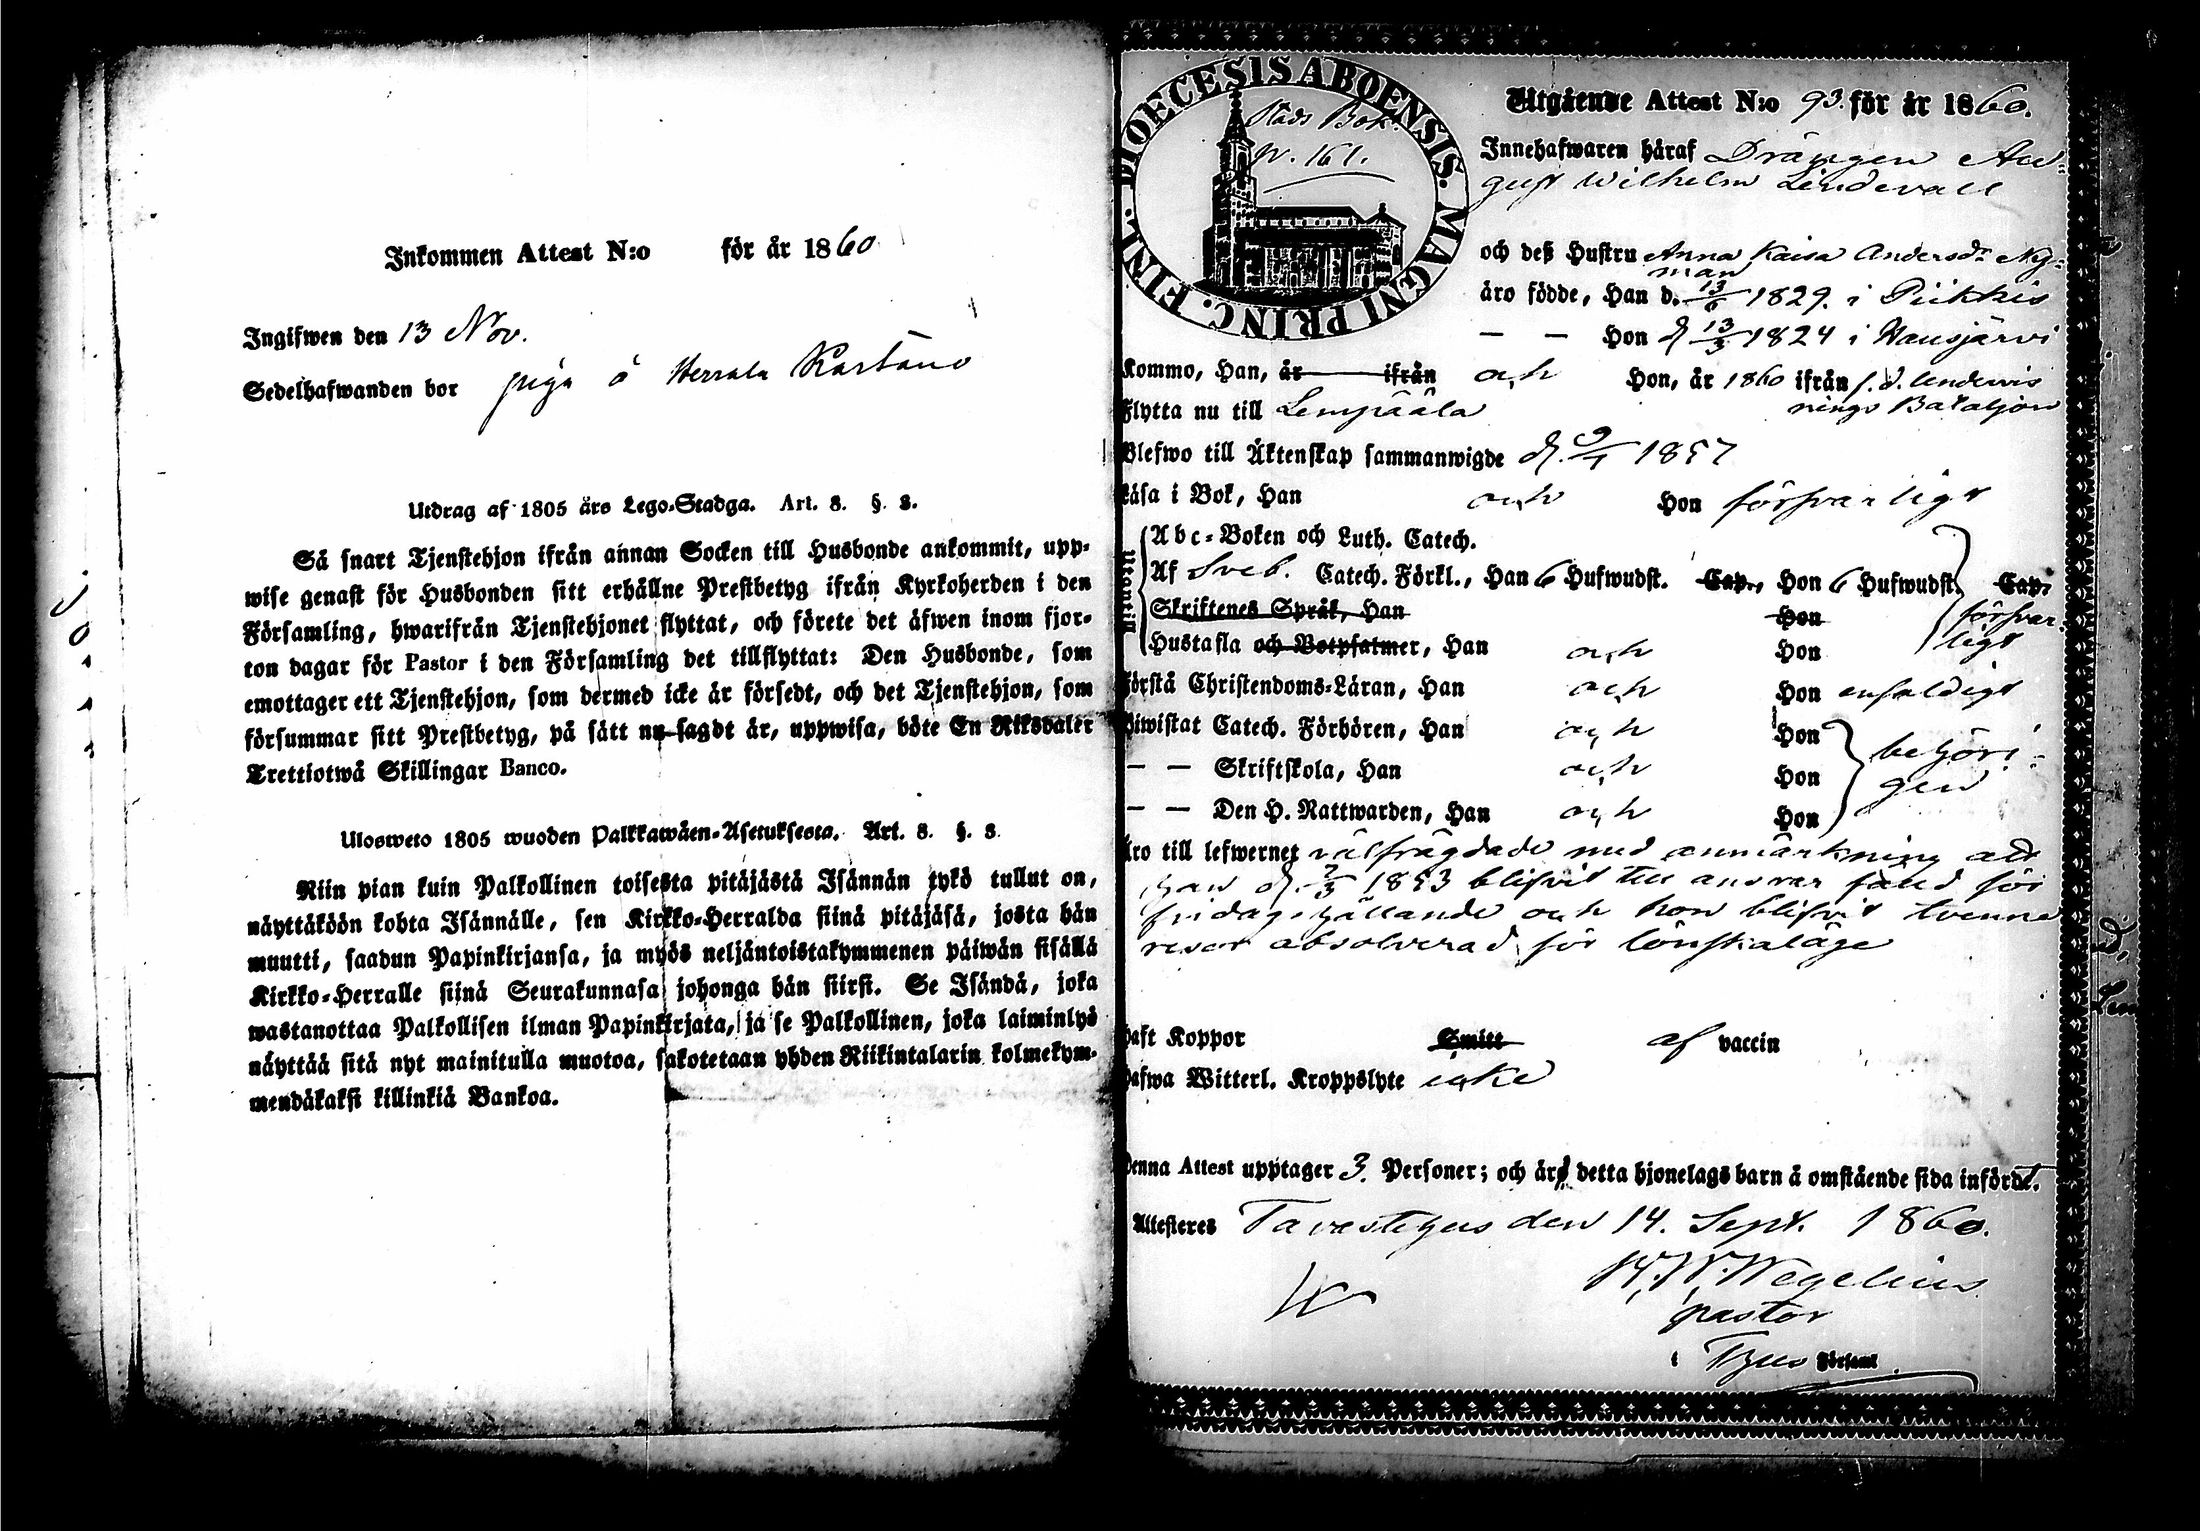 Inkommen Attest N:o för år 1860
Ingifwen den 13 Nov.
Sedelhafwanden bor piga å Herrala Kartano
Utdrag af 1805 års Lego-Stadga. Art. 8. §. 3.
Så snart Tjenstehjon ifrån annan Socken till Husbonde ankommit, upp-
wise genast för Husbonden sitt erhållne Prestbetyg ifrån Kyrkoherden i den
Församling, hwarifrån Tjenstehjonet flyttat, och förete det äfwen inom fjor-
ton dagar för Pastor i den Församling det tillflyttat: Den Husbonde, som
emottager ett Tjenstehjon, som dermed icke är försedt, och det Tjenstehjon, som
försummar sitt Prestbetyg, på sätt nu sagdt är, uppwisa, böte En Riksdaler
Trettiotwå Skillingar Banco.
Ulosweto 1805 wuoden Palkkawäen-Asetuksesta. Art. 8. §. 3
Niin pian kuin Palkollinen toisesta pitäjästä Isännän tykö tullut on,
näyttäköön kohta Isännälle, sen Kirkko-Herralda siinä pitäjäsä, josta hän
muutti, saadun Papinkirjansa, ja myös neljäntoistakymmenen päiwän sisällä
Kirkko-Herralle siinä Seurakunnasa johonga hän siirsi. Se Isändä, joka
wastanottaa Palkollisen ilman Papinkirjata, ja se Palkollinen, joka laiminlyö
näyttää sitä nyt mainitulla muotoa, sakotetaan yhden Riikintalarin kolmekym-
mendäkaksi killinkiä Bankoa.
DIOECESIS ABOENSIS. MAGNI PRINC. FINL.
Städs Bok.
p. 161.
Utgående Attest N:o 93. för år 1860.
Innehafwaren häraf Drängen Au-
gust Wilhelm Lindevall
och deß Hustru Anna Kaisa Andersdr Ny-
man
äro födde, Han d. 13/6 1829. i Piikkis
— — Hon d 13/3 1824 i Hausjärvi
Kommo, Han, år ifrån och Hon, år 1860 ifrån f. d. Undervis
nings Bataljon
Flytta nu till Lempäälä
Blefwo till Äktenskap sammanwigde d. 9/7 1857
Läsa i Bok, Han och Hon försvarligt
Utantill
Abc-Boken och Luth. Catech.
Af Sveb. Catech. Förkl., Han 6 Hufwudst. Cap., Hon 6 Hufwudst. Cap.
Skriftenes Språk, Han Hon försvar-
Hustafla och Botpsalmer, Han och Hon ligt
Förstå Christendoms-Läran, Han och Hon enfaldigt
Biwistat Catech. Förhören, Han och Hon behöri-
— — Skriftskola, Han och Hon gen
— — Den H. Nattwarden, Han och Hon
Äro till lefwernet välfrägdade med anmärkning att
han d. 7/3 1853 blifvit till ansvar fäld för
fridagshållande och hon blifvit tvenne
resor absolverad för lönskaläge
Haft Koppor Smitt af vaccin
Hafwa Witterl. Kroppslyte icke
Denna Attest upptager 3. Personer; och äro detta hjonelags barn å omstående sida infördt.
Attesteres Tavastehus den 14. Sept. 1860.
H. W. Wegelius
pastor
i Thus Församl.